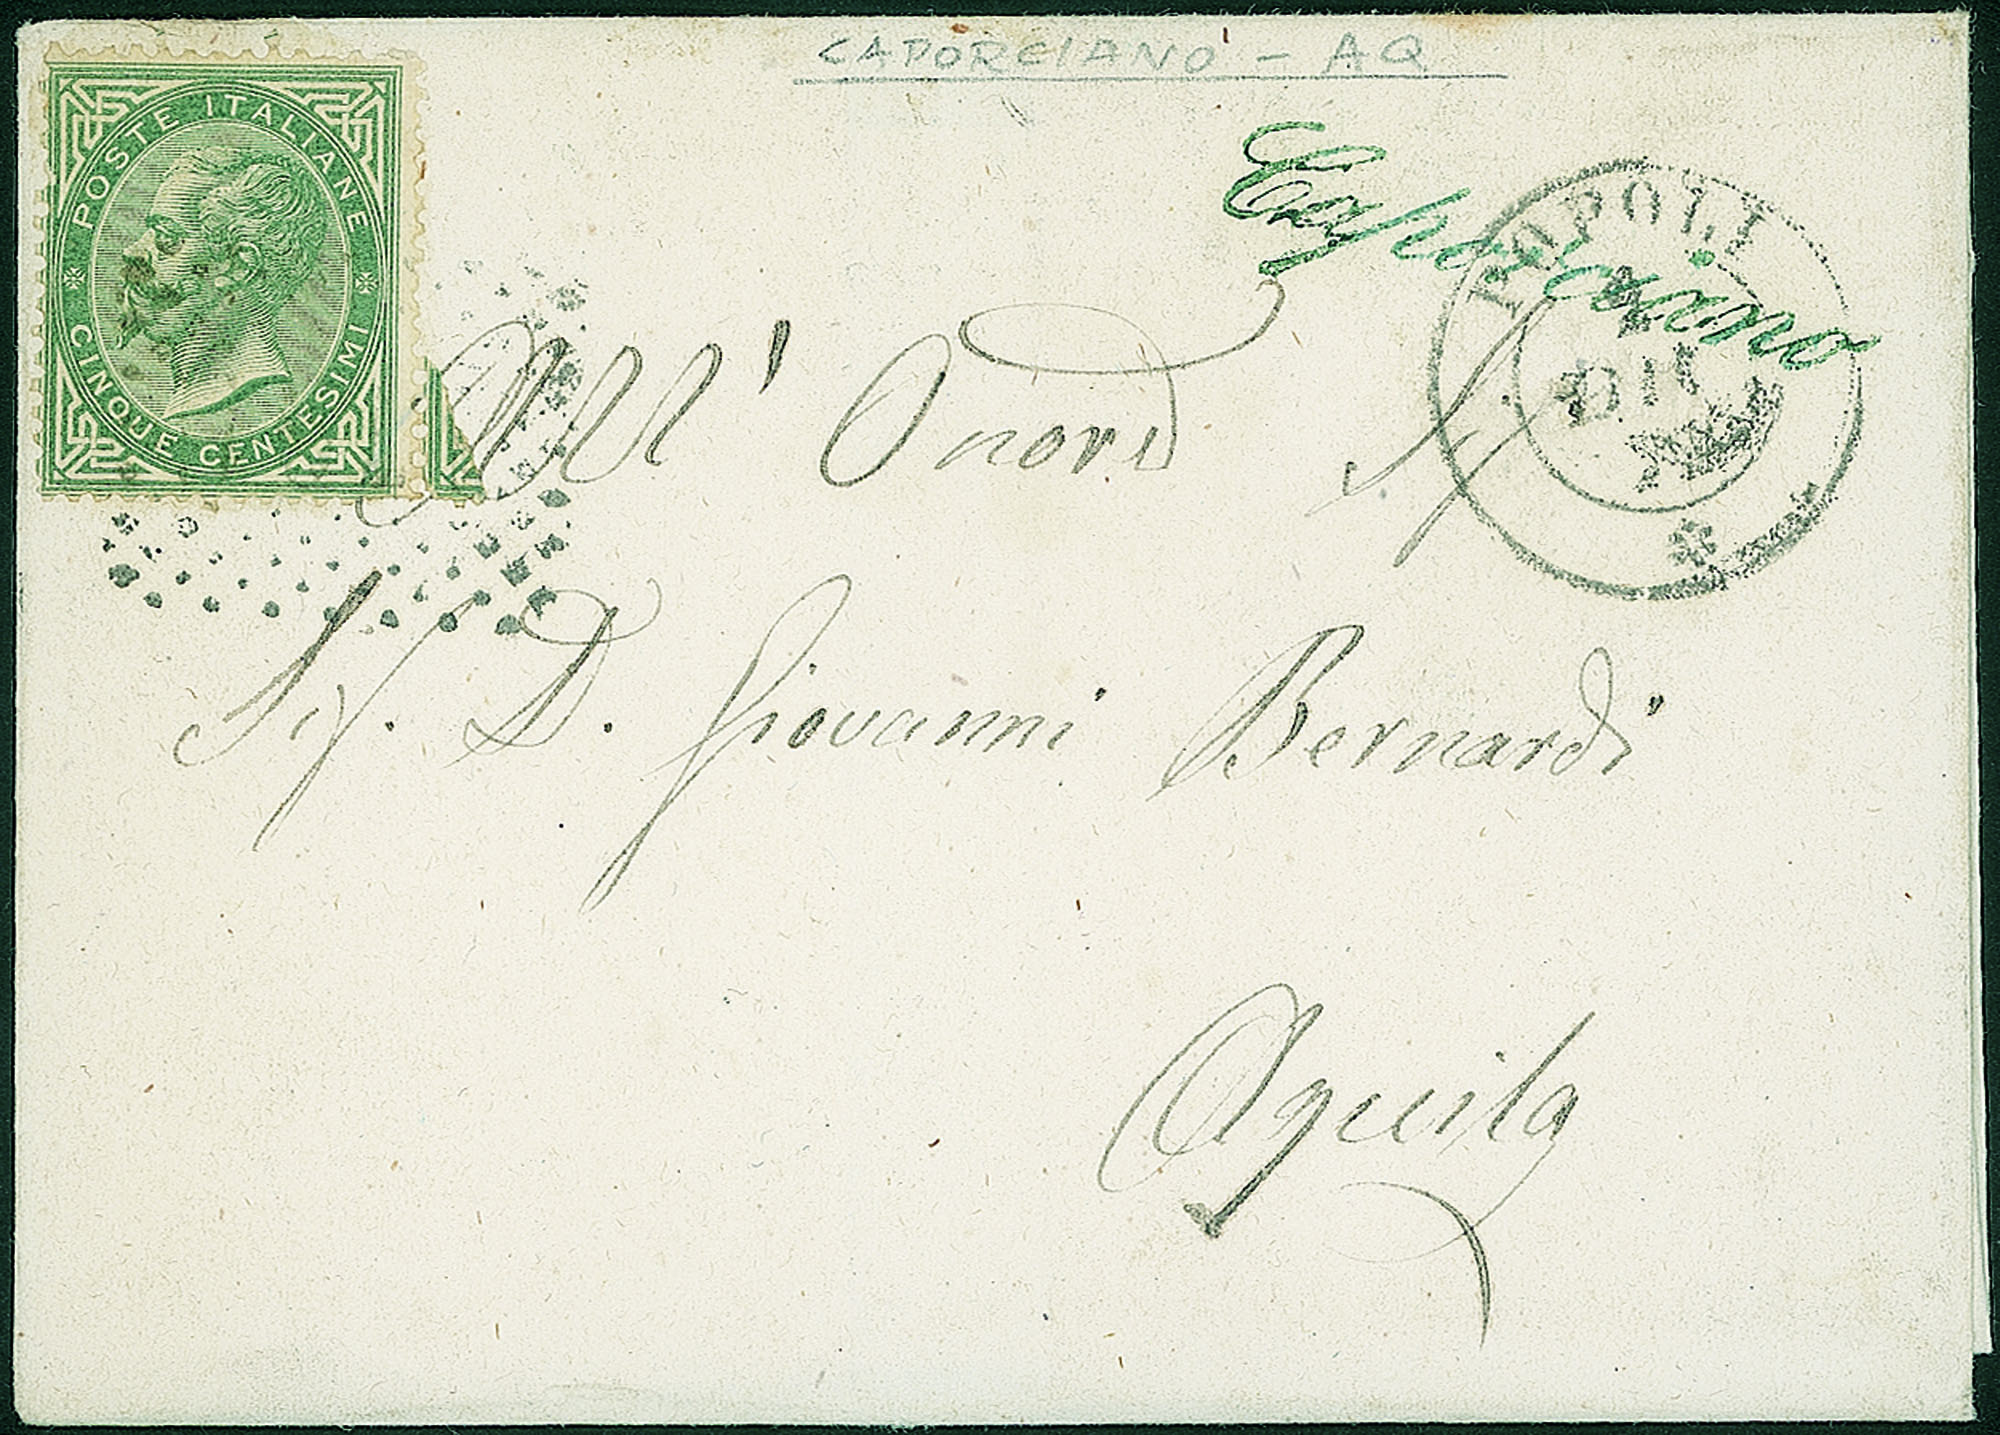 CAPORCIANO - AQ
POSTE ITALIANE
CINQUE CENTESIMI
Caporciano
POPOLI
DIC
All' Onor
Sig. D. Giovanni Bernardi
Aquila